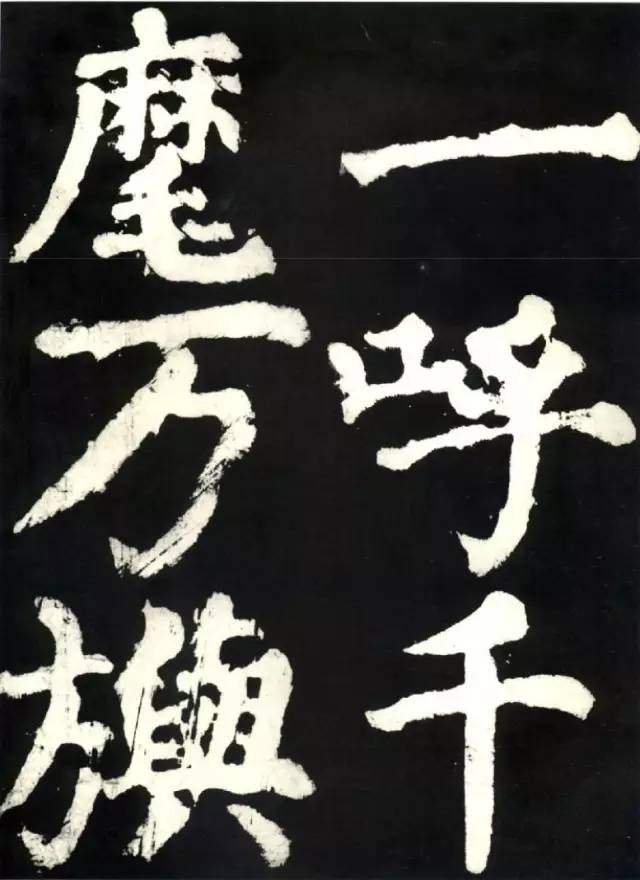 一呼千
麾万旟